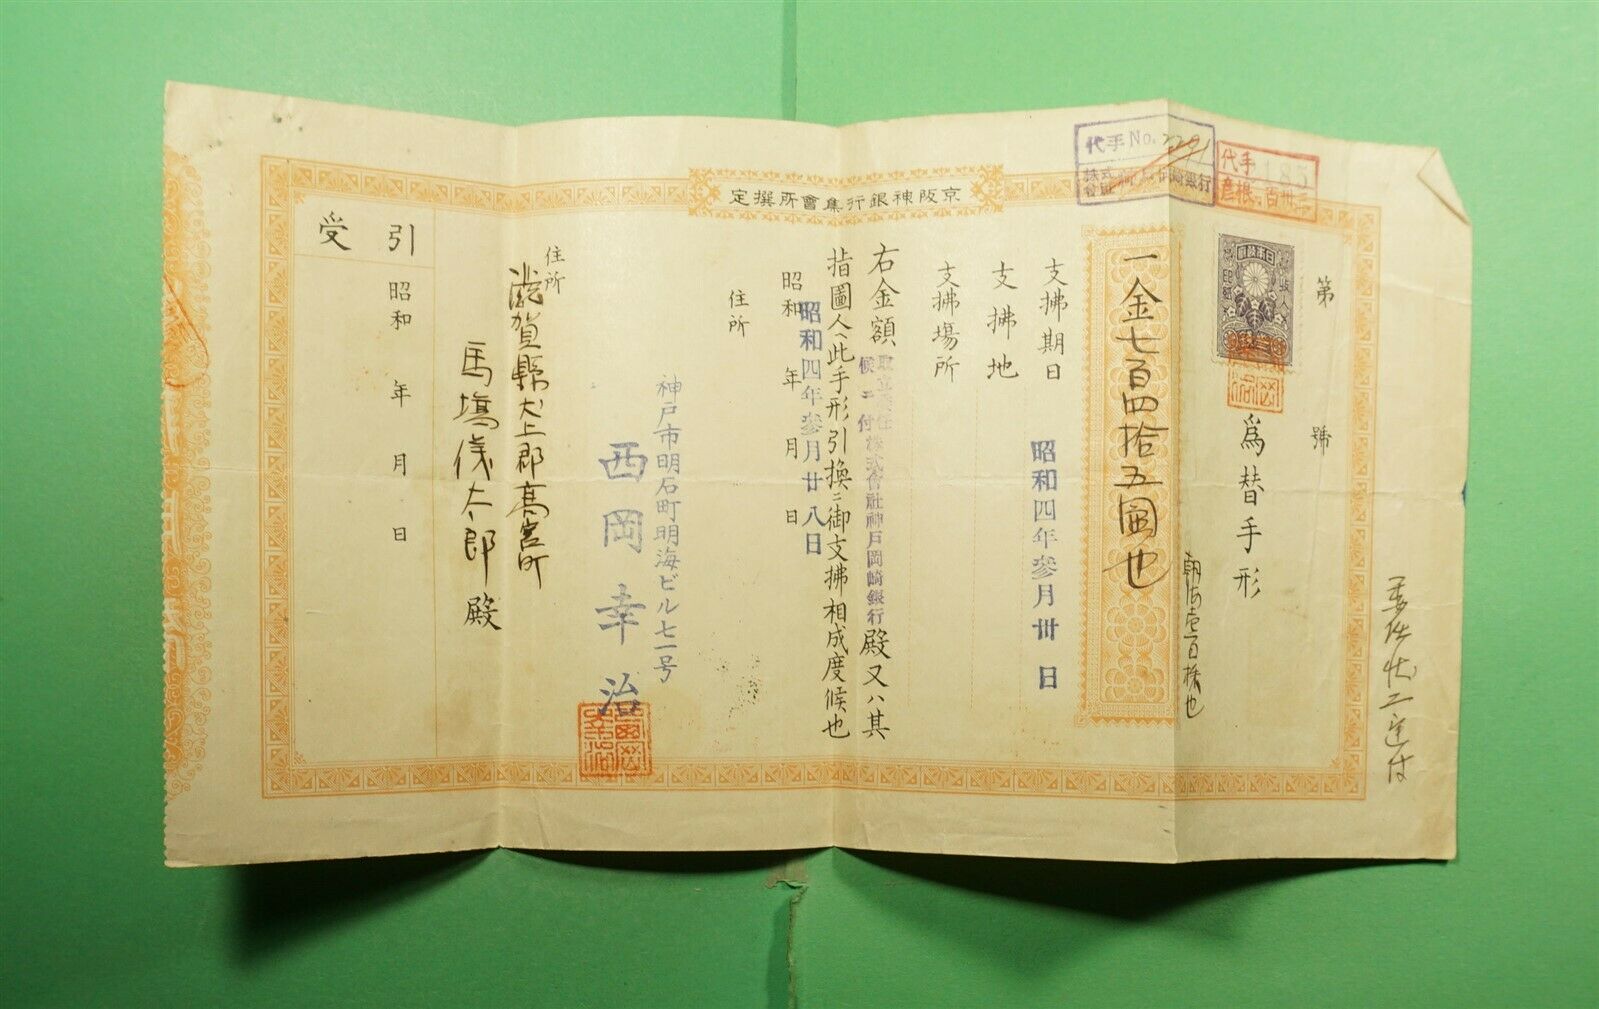 京阪神銀行集會所撰定
代手No.
株式會社
銀行
代手
185
彦根
百卅二
第 號
為替手形
一金七百四拾五圓也
支拂期日 昭和四年参月卅日
支拂地
支拂場所
右金額 殿又ハ其
取立委任候ニ付
株式會社神戸岡崎銀行
指圖人ヘ此手形引換ニ御支拂相成度候也
昭和 年 月 日
昭和四年参月廿八日
住所
神戸市明石町明海ビル七一号
西岡幸治
住所
滋賀縣犬上郡高宮町
馬塲儀太郎殿
引受
昭和 年 月 日